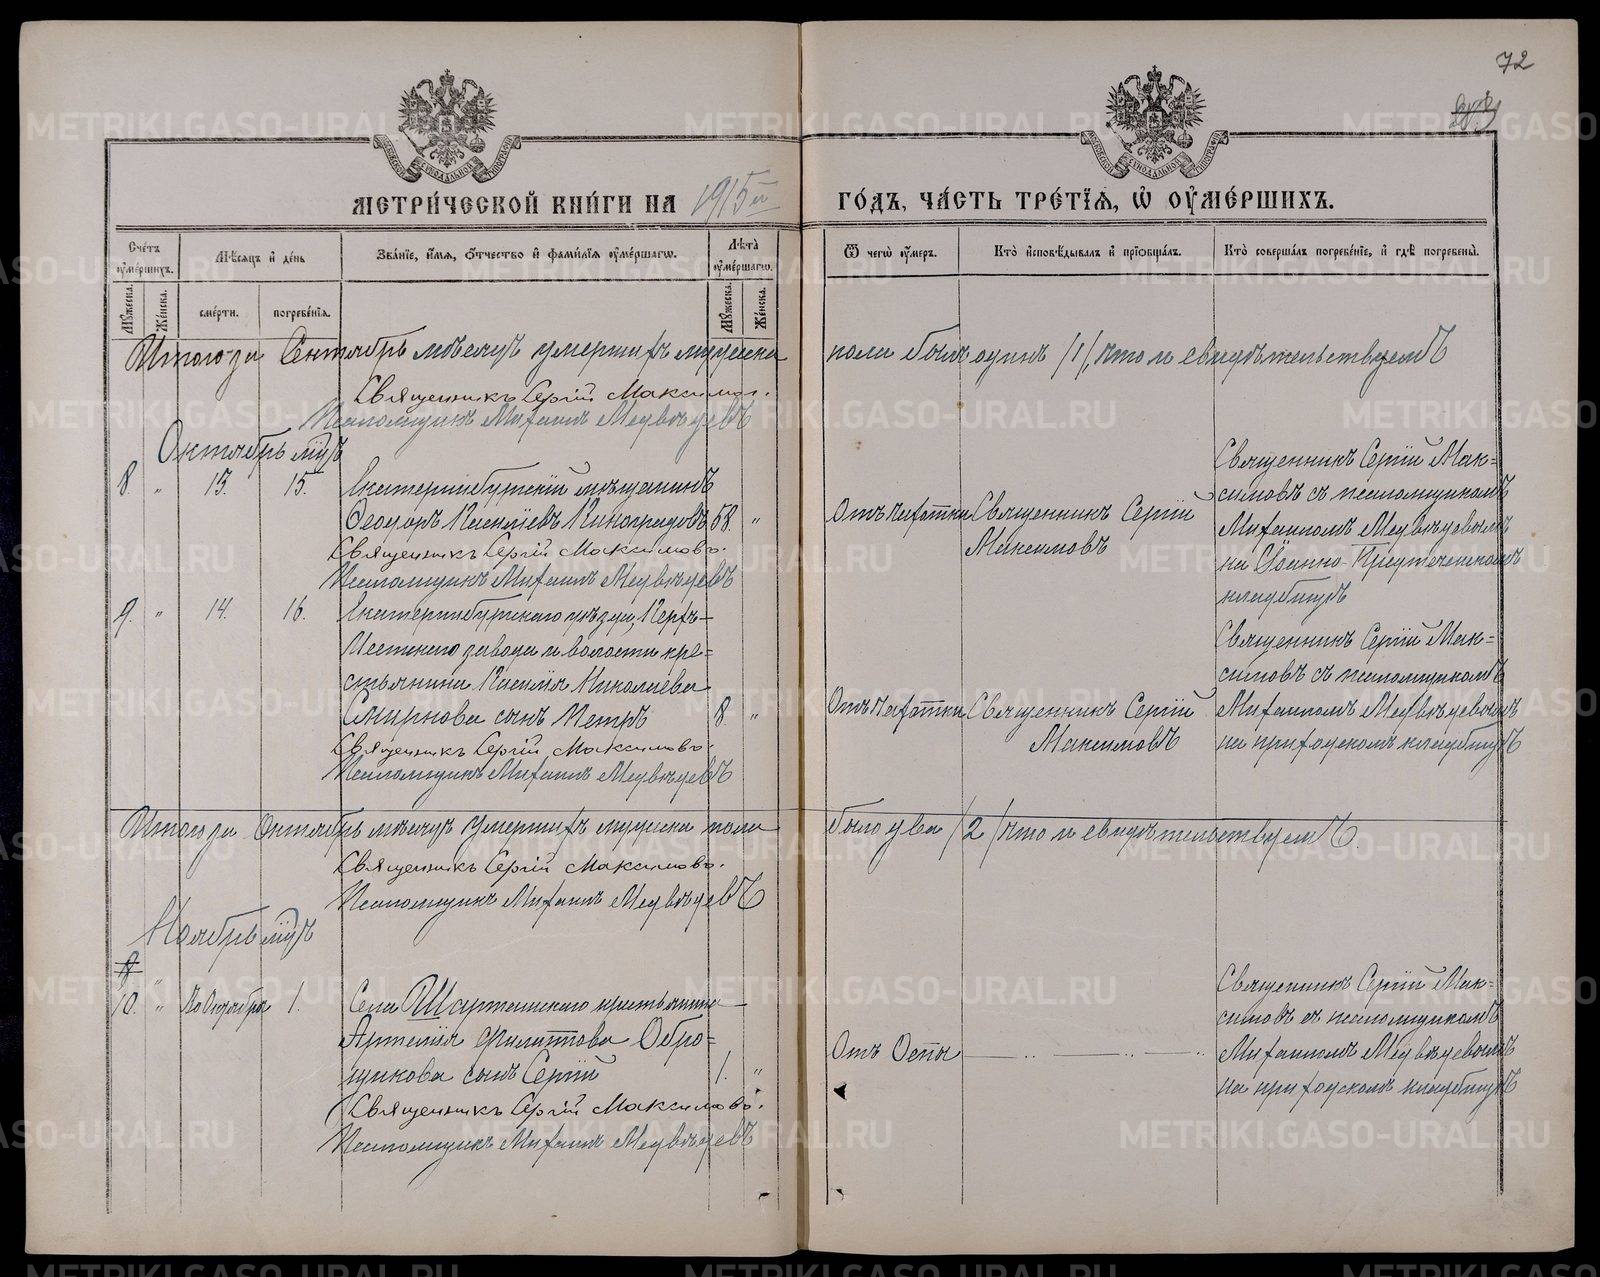 72
МЕТРИ́ЧЕСКОЙ КНИ́ГИ НА 1915й ГО́ДЪ, ЧА́СТЬ ТРЕ́ТІЯ, Ѡ ОУМЕ́РШИХЪ.
Сче́тъ оуме́ршихъ.
Мѣ́сяцъ и де́нь
Зва́ніе, и́мя, о́тчество и фами́лія оуме́ршагѡ.
Лѣ́та оуме́ршагѡ.
Ѿ чегѡ̀ оу́меръ.
Кто̀ исповѣ́дывалъ и пріобща́лъ.
Кто̀ соверша́лъ погребе́ніе, и гдѣ̀ погребены̀.
Му́жеска.
Же́нска.
сме́рти.
погребе́нія.
Му́жеска.
Же́нска.
Итого за Сентябрь мѣсяцъ умершихъ мужеска пола былъ одинъ /1/, что и свидѣтельствуемъ
Священникъ Сергій Максимов.
Псаломщикъ Михаилъ Медвѣдевъ
Октябрь мѣц.
8. " 13. 15. Екатеринбургскій мѣщанинъ
Ѳеодоръ Киселіев Виноградовъ 58. "
Священникъ Сергій Максимовъ.
Псаломщикъ Михаилъ Медвѣдевъ
Отъ чахотки
Священникъ Сергій
Максимовъ
Священникъ Сергій Мак=
симовъ съ псаломщикомъ
Михаиломъ Медвѣдевымъ
на Іоанно-Предтеченскомъ
кладбищѣ
9. " 14. 16. Екатеринбургскаго уѣзда, Верхъ-
Исетскаго завода и волости кре=
стьянина Василія Николаева
Смирнова сынъ Петръ 8 "
Священникъ Сергій Максимовъ.
Псаломщикъ Михаилъ Медвѣдевъ
Отъ чахотки
Священникъ Сергій
Максимовъ
Священникъ Сергій Мак=
симовъ съ псаломщикомъ
Михаиломъ Медвѣдевымъ
на приходскомъ кладбищѣ
Итого за Октябрь мѣсяцъ умершихъ мужеска пола было два /2/ что и свидѣтельствуемъ.
Священникъ Сергій Максимовъ.
Псаломщикъ Михаилъ Медвѣдевъ
Ноябрь мѣц.
10. " Октября 1. Села Шарташскаго крестьянина
Артемія Филиппова Обро=
щикова сынъ Сергій 1. "
Священникъ Сергій Максимовъ.
Псаломщикъ Михаилъ Медвѣдевъ
Отъ Оспы
Священникъ Сергій Мак=
симовъ съ псаломщикомъ
Михаиломъ Медвѣдевымъ
на приходскомъ кладбищѣ
METRIKI.GASO-URAL.RU